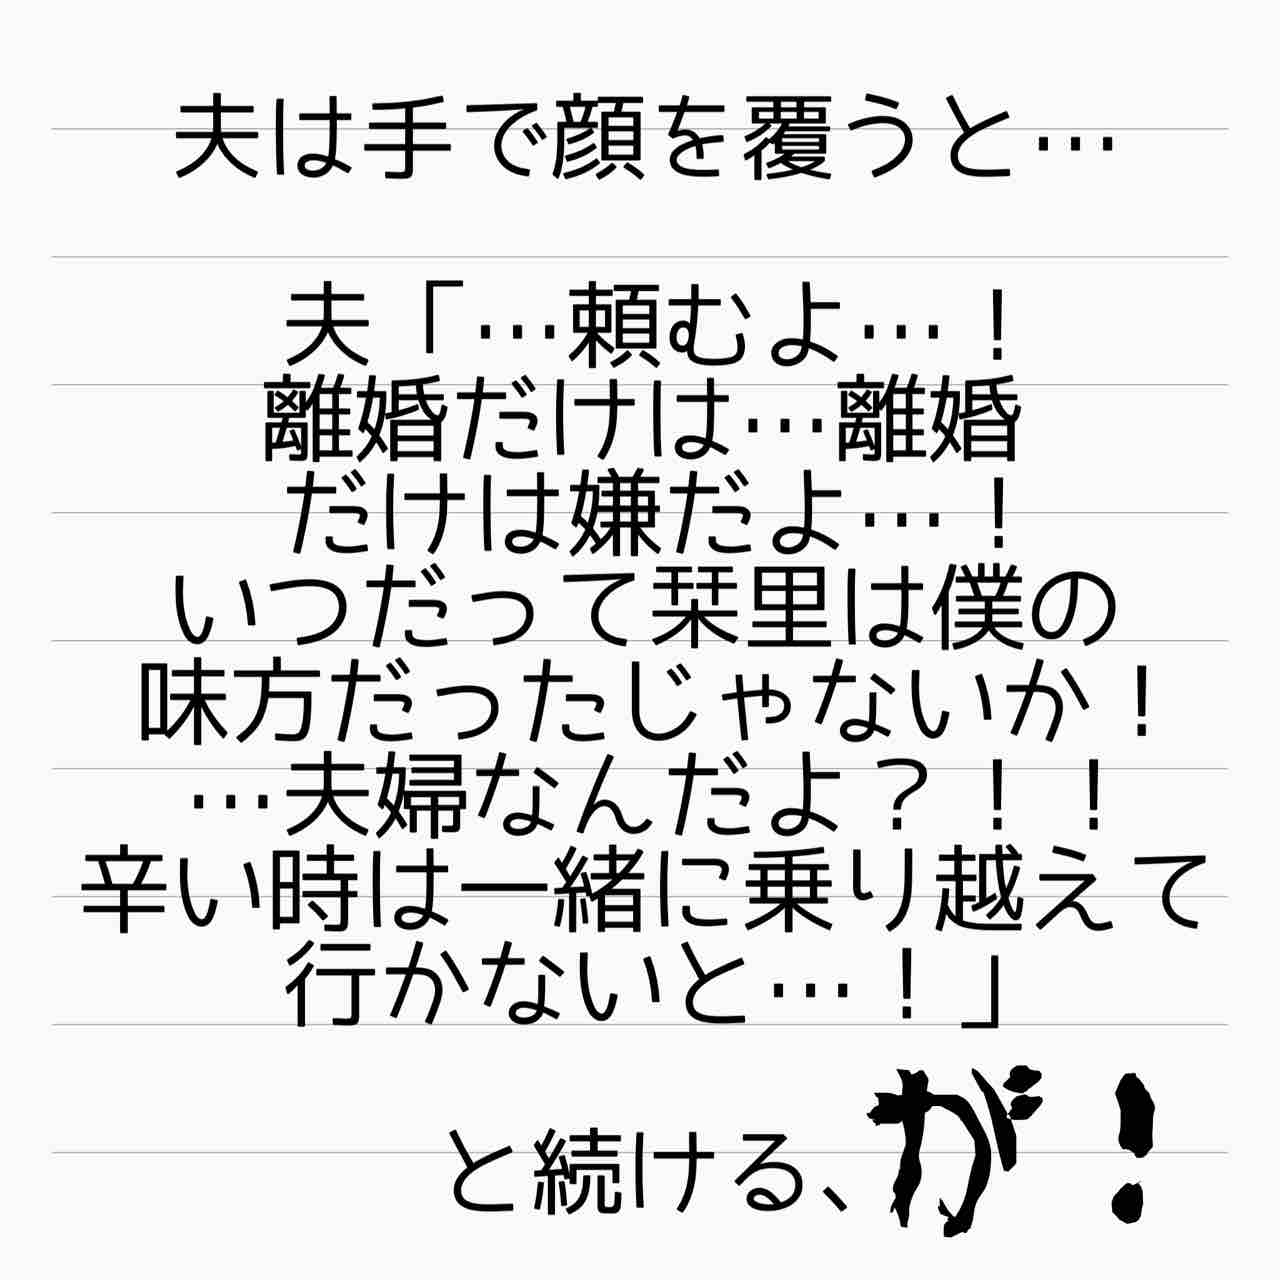 夫は手で顔を覆うと…
夫「…頼むよ…！
離婚だけは…離婚
だけは嫌だよ…！
いつだって栞里は僕の
味方だったじゃないか！
…夫婦なんだよ？！！
辛い時は一緒に乗り越えて
行かないと…！」
と続ける、が！